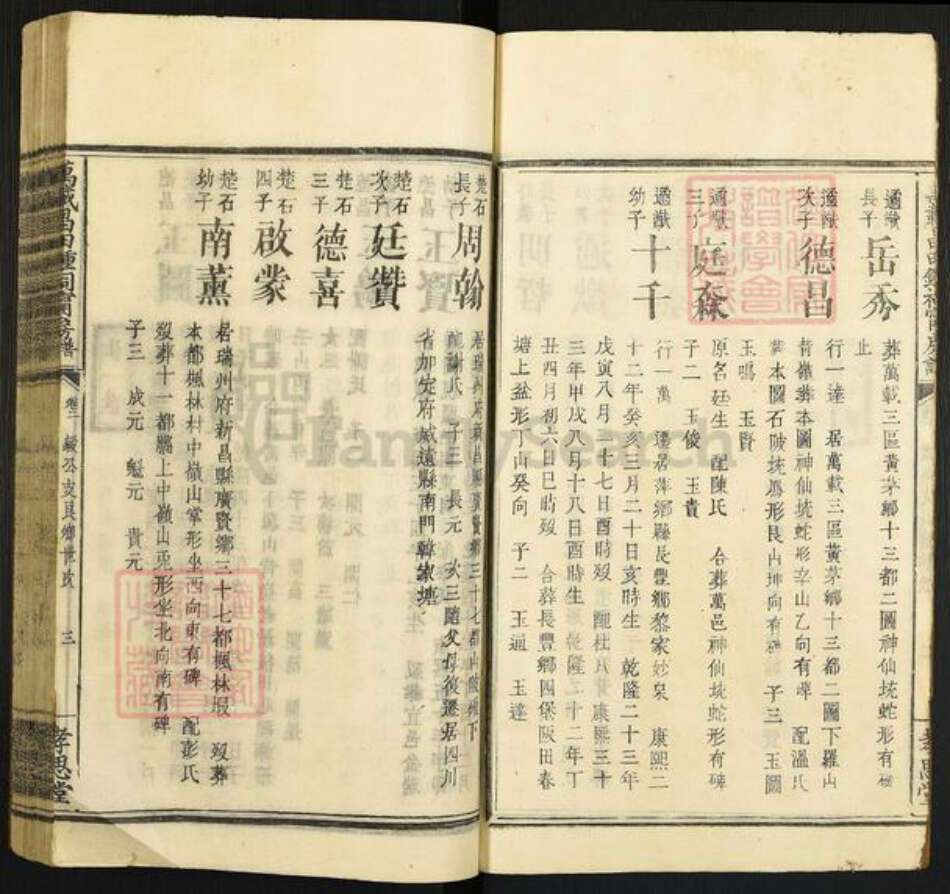 遹猷長子 岳秀
葬萬載三區黃茅鄉十三都二圖神仙坑蛇形有碑
止
遹猷次子 德昌
行一達 居萬載三區黃茅鄉十三都二圖下羅山
葬本圖神仙坑蛇形辛山乙向有碑 配溫氏
葬本圖石陂坑 形艮山坤向有碑 子三 玉圖
玉鳴 玉賢
遹猷三子 庭森
原名廷生 配陳氏 合葬萬邑神仙坑蛇形有碑
子二 玉俊 玉貴
遹猷幼子 十千
行一萬 遷居萍鄉縣長豐鄉黎家妙泉 康熙二
十二年癸亥三月二十日亥時生 乾隆二十三年
戊寅八月二十七日酉時歿 配杜氏 康熙三十
三年甲戌八月十八日酉時生 乾隆二十二年丁
丑四月初六日巳時歿 合葬長豐鄉四堡陂田春
塘上盆形丁山癸向 子二 玉迴 玉達
楚石長子 周翰
居瑞州府新昌縣廣賢鄉三十七都山陂 下
配謝氏 子三 長元 次三隨父母復遷居四川
省加定府威遠縣南門韓家塘
楚石次子 廷讚
楚石三子 德喜
楚石四子 啟蒙
楚石幼子 南薰
居瑞州府新昌縣廣賢鄉三十七都楓林塅 歿葬
本都楓林村中嶺山掌形坐西向東有碑 配彭氏
歿葬十一都鵬上中嶺山兎形坐北向南有碑
子三 成元 魁元 貴元
萬載昌田鍾祠 房譜
卷二
三
孝思堂
FamilySearch